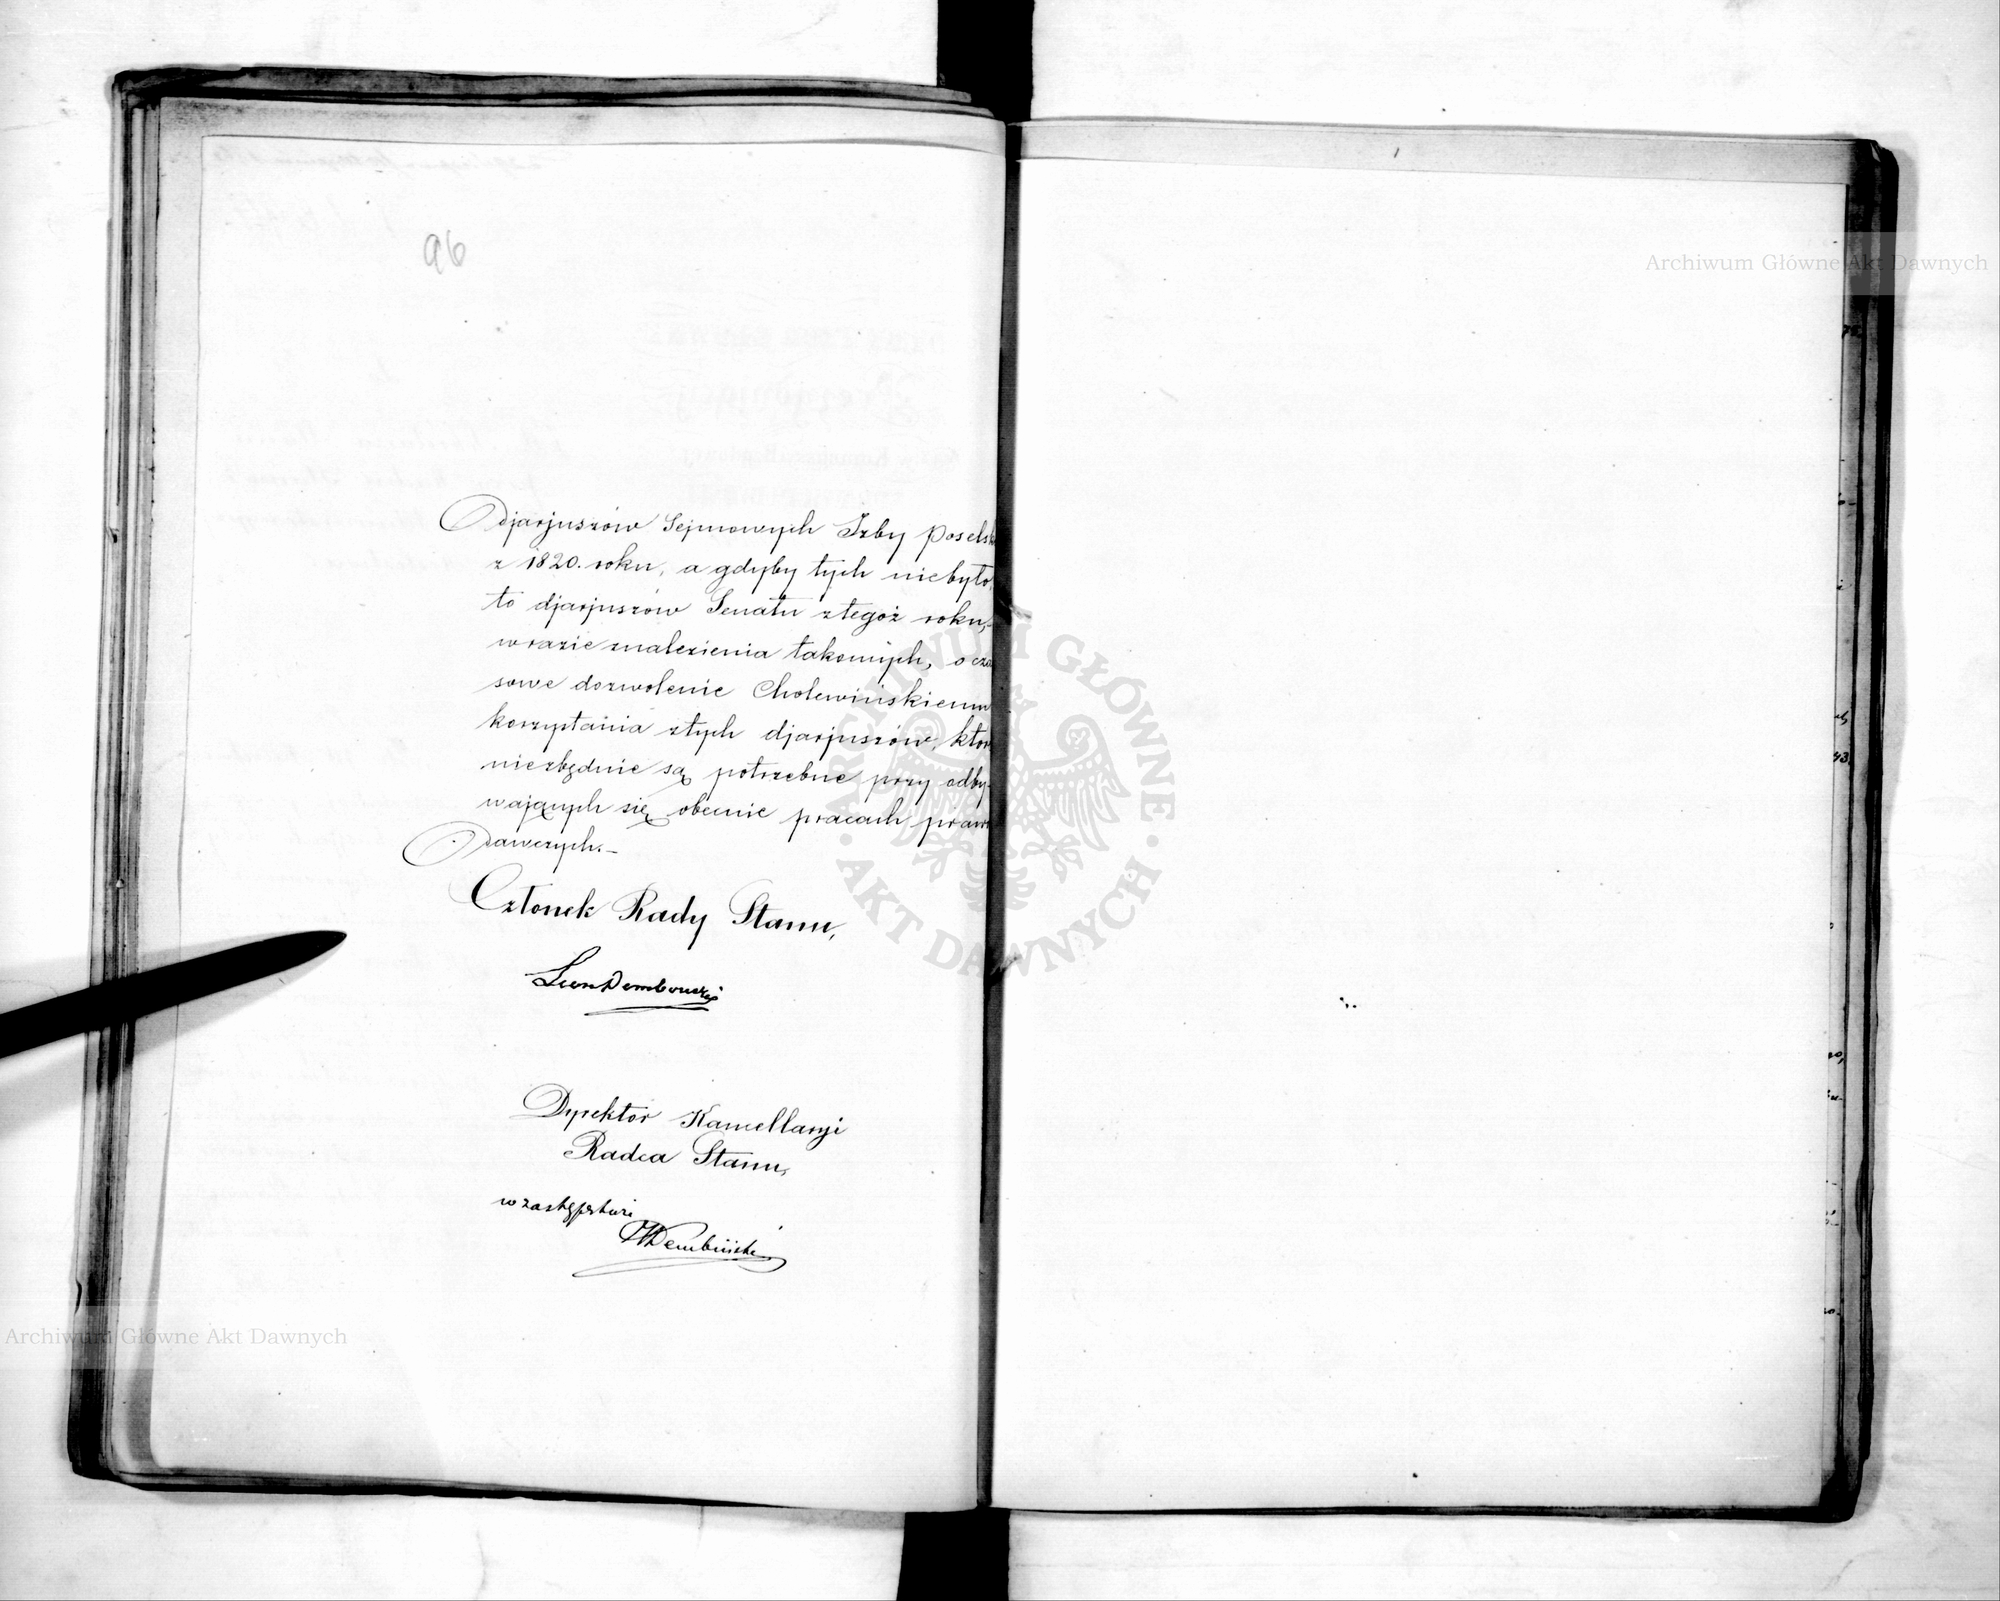 96
djarjuszów Sejmowych Izby Posels
z 1820. roku, a gdyby tych niebyło,
to djarjuszów Senatu z tegoż roku,
w razie znalezienia takowych, o cza
sowe dozwolenie Cholewińskiemu
korzystania z tych djarjuszów, któr
niezbędnie są potrzebne przy odby-
wających się obecnie pracach prawo
dawczych.-
Członek Rady Stanu,
Leon Dembowski
Dyrektor Kancellaryi
Radca Stanu,
w zastępstwie
Dembiński
Archiwum Główne Akt Dawnych
Archiwum Główne Akt Dawnych
ARCHIWUM GŁÓWNE · AKT DAWNYCH ·